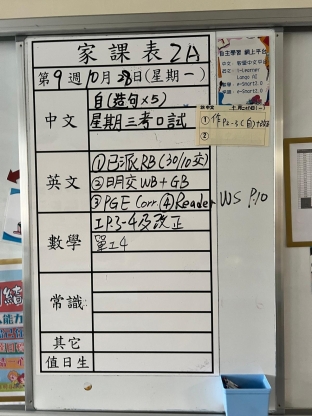 家課表 2A
第9週10月28日(星期一)
中文
自(造句×5)
星期三考口試
英文
①已派RB(30/10交)
②明交WB+GB
③PGE Corr ④Reader WS P.10
數學
工P.3-4及改正
單工4
常識
其它
值日生
自主學習 網上平台
①
②